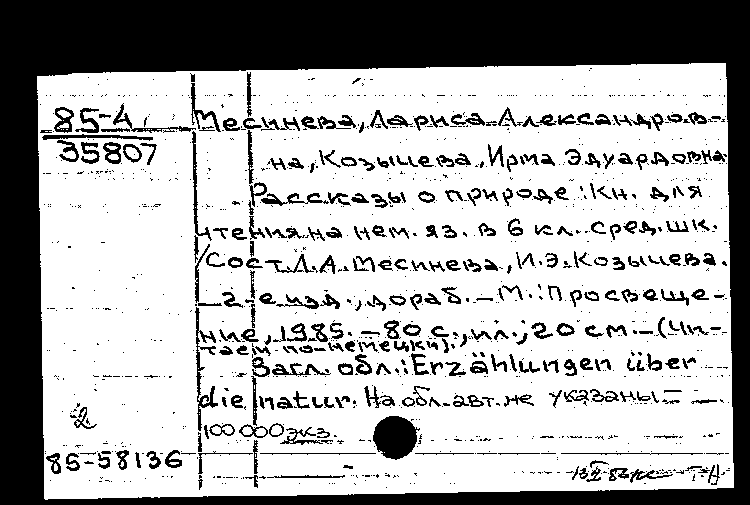 85-4
35807
Месинева, Лариса Александров-
на, Козычева, Ирма Эдуардовна
Рассказы о природе : Кн. для
чтения на нем. яз. в 6 кл. сред. шк.
/Сост. Л.А. Месинева, И.Э. Козычева.
— 2-е изд., дораб. — М. : Просвеще-
ние, 1985. — 80 с., ил.; 20 см. — (Чи-
таем по-немецки).
Загл. обл.: Erzählungen über
die natur. На обл. авт. не указаны —
2
100 000 экз.
85-58136